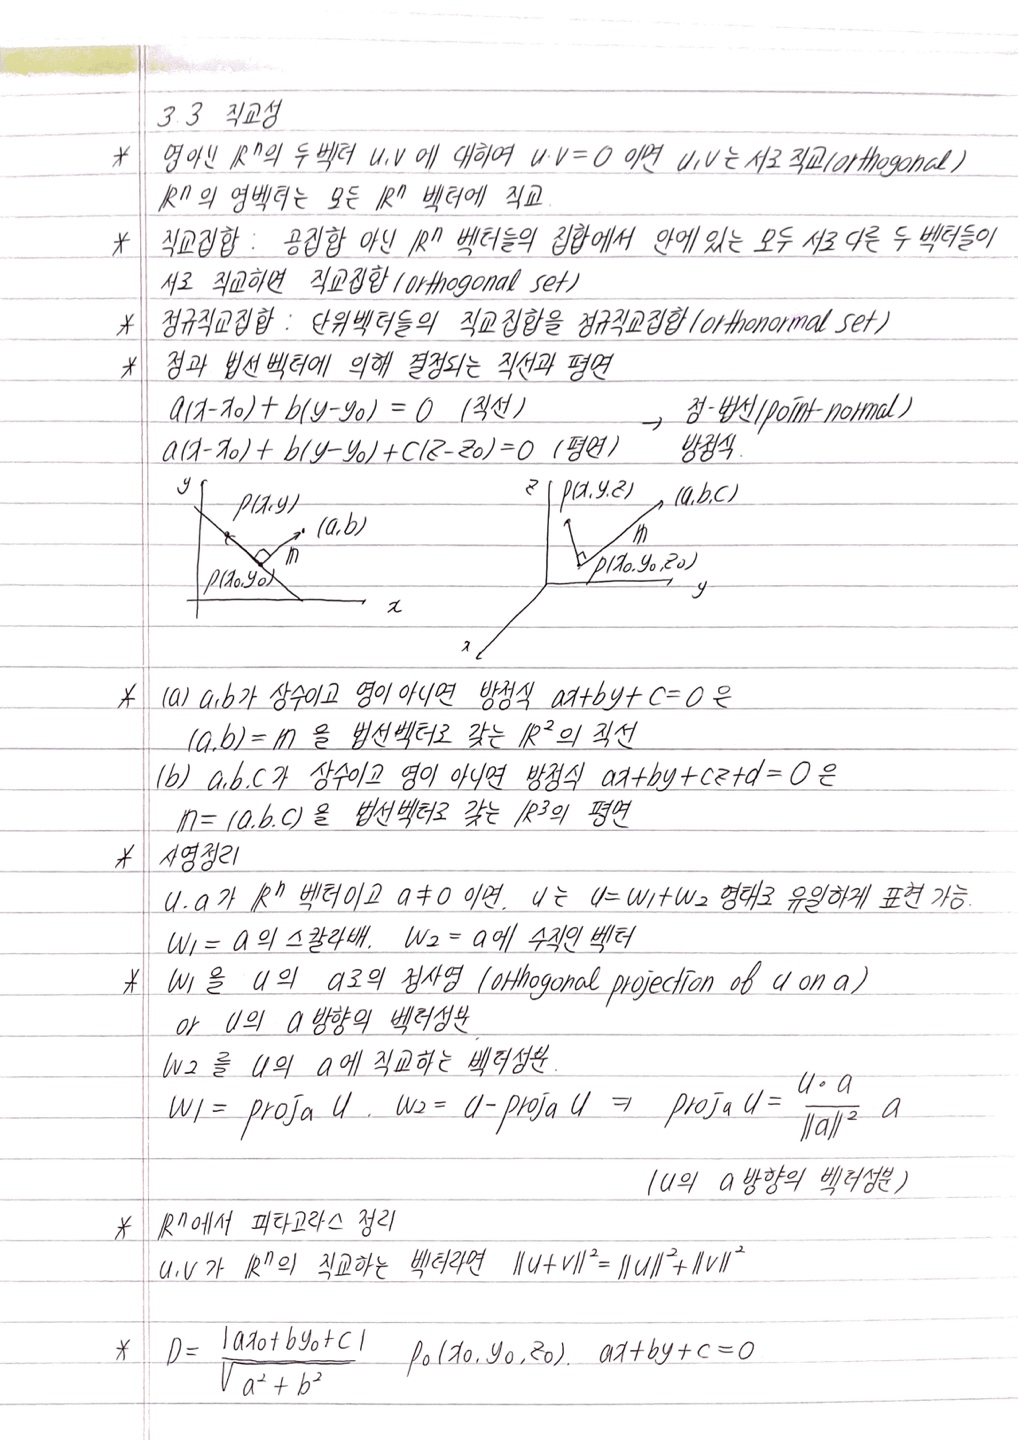 3.3 직교성
* 영아닌 ℝⁿ의 두 벡터 u,v에 대하여 u·v=0 이면 u,v는 서로 직교(orthogonal)
ℝⁿ의 영벡터는 모든 ℝⁿ 벡터에 직교.
* 직교집합 : 공집합 아닌 ℝⁿ 벡터들의 집합에서 안에 있는 모두 서로 다른 두 벡터들이
서로 직교하면 직교집합(orthogonal set)
* 정규직교집합 : 단위벡터들의 직교집합을 정규직교집합(orthonormal set)
* 점과 법선벡터에 의해 결정되는 직선과 평면
a(x-x₀)+b(y-y₀)=0 (직선) → 점-법선(point-normal)
a(x-x₀)+b(y-y₀)+c(z-z₀)=0 (평면) 방정식.
y P(x,y) (a,b) n P(x₀,y₀) x
z P(x,y,z) (a,b,c) n P(x₀,y₀,z₀) y x
* (a) a,b가 상수이고 영이 아니면 방정식 ax+by+c=0 은
(a,b)=n 을 법선벡터로 갖는 ℝ²의 직선
(b) a,b,c가 상수이고 영이 아니면 방정식 ax+by+cz+d=0 은
n=(a,b,c)을 법선벡터로 갖는 ℝ³의 평면
* 사영정리
u,a가 ℝⁿ 벡터이고 a≠0 이면, u는 u=w1+w2 형태로 유일하게 표현 가능.
w1=a의 스칼라배, w2=a에 수직인 벡터
* w1을 u의 a로의 정사영 (orthogonal projection of u on a)
or u의 a방향의 벡터성분
w2를 u의 a에 직교하는 벡터성분.
w1=projₐ u, w2=u-projₐ u ⇒ projₐ u = (u·a)/‖a‖² a
(u의 a방향의 벡터성분)
* ℝⁿ에서 피타고라스 정리
u,v가 ℝⁿ의 직교하는 벡터라면 ‖u+v‖²=‖u‖²+‖v‖²
* D= |ax₀+by₀+c| / √(a²+b²) P₀(x₀,y₀,z₀), ax+by+c=0